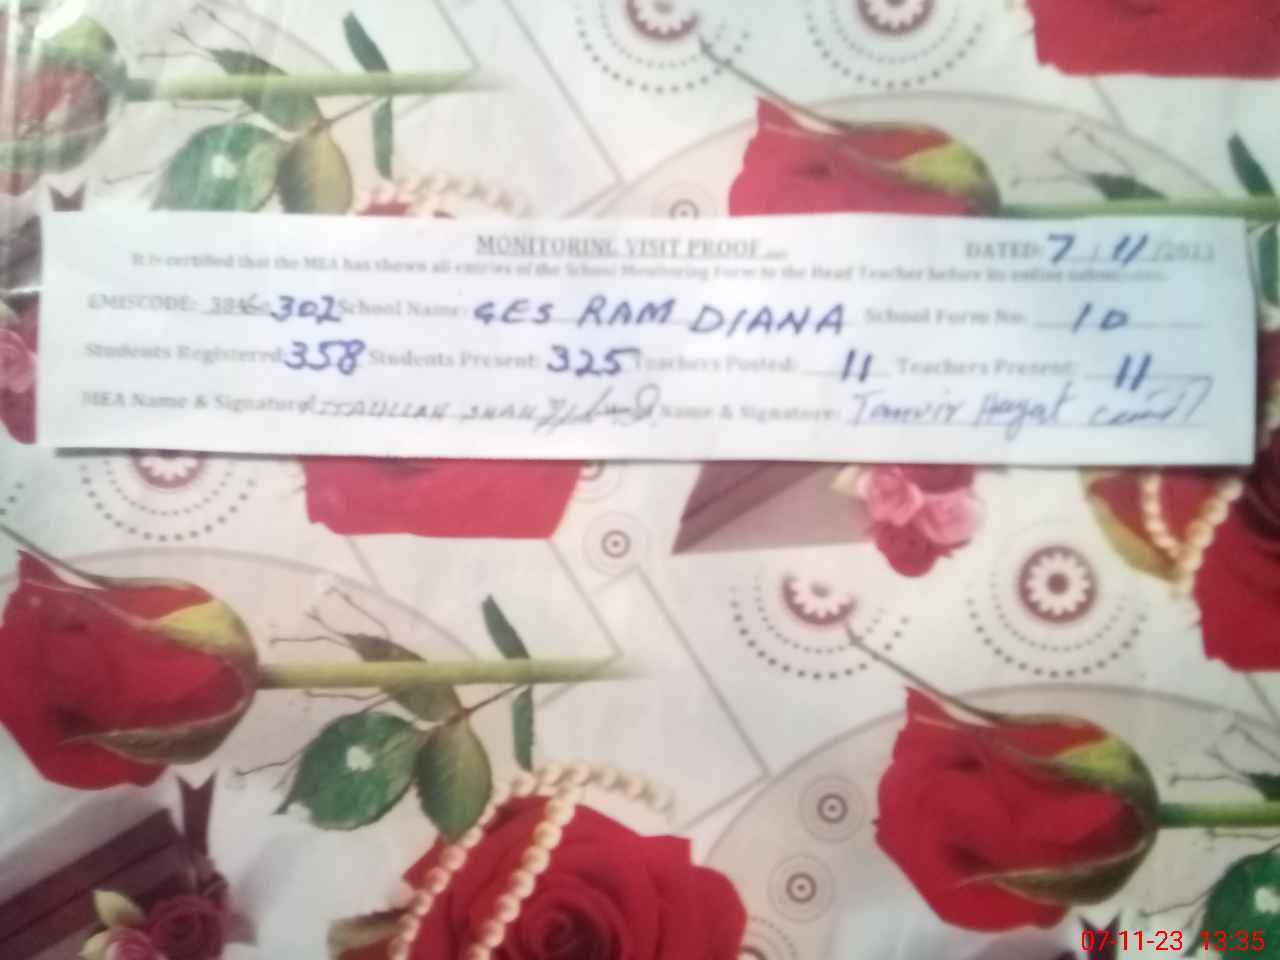 MONITORING VISIT PROOF DATED: 7 / 11 /2023
It is certified that the MEA has shown all entries of the School Monitoring Form to the Head Teacher before its online submission.
EMISCODE: 302 School Name: GES RAM DIANA School Form No. 10
Students Registered: 358 Students Present: 325 Teachers Posted: 11 Teachers Present: 11
MEA Name & Signature SHAH Name & Signature: Tanvir Hayat
07-11-23 13:35